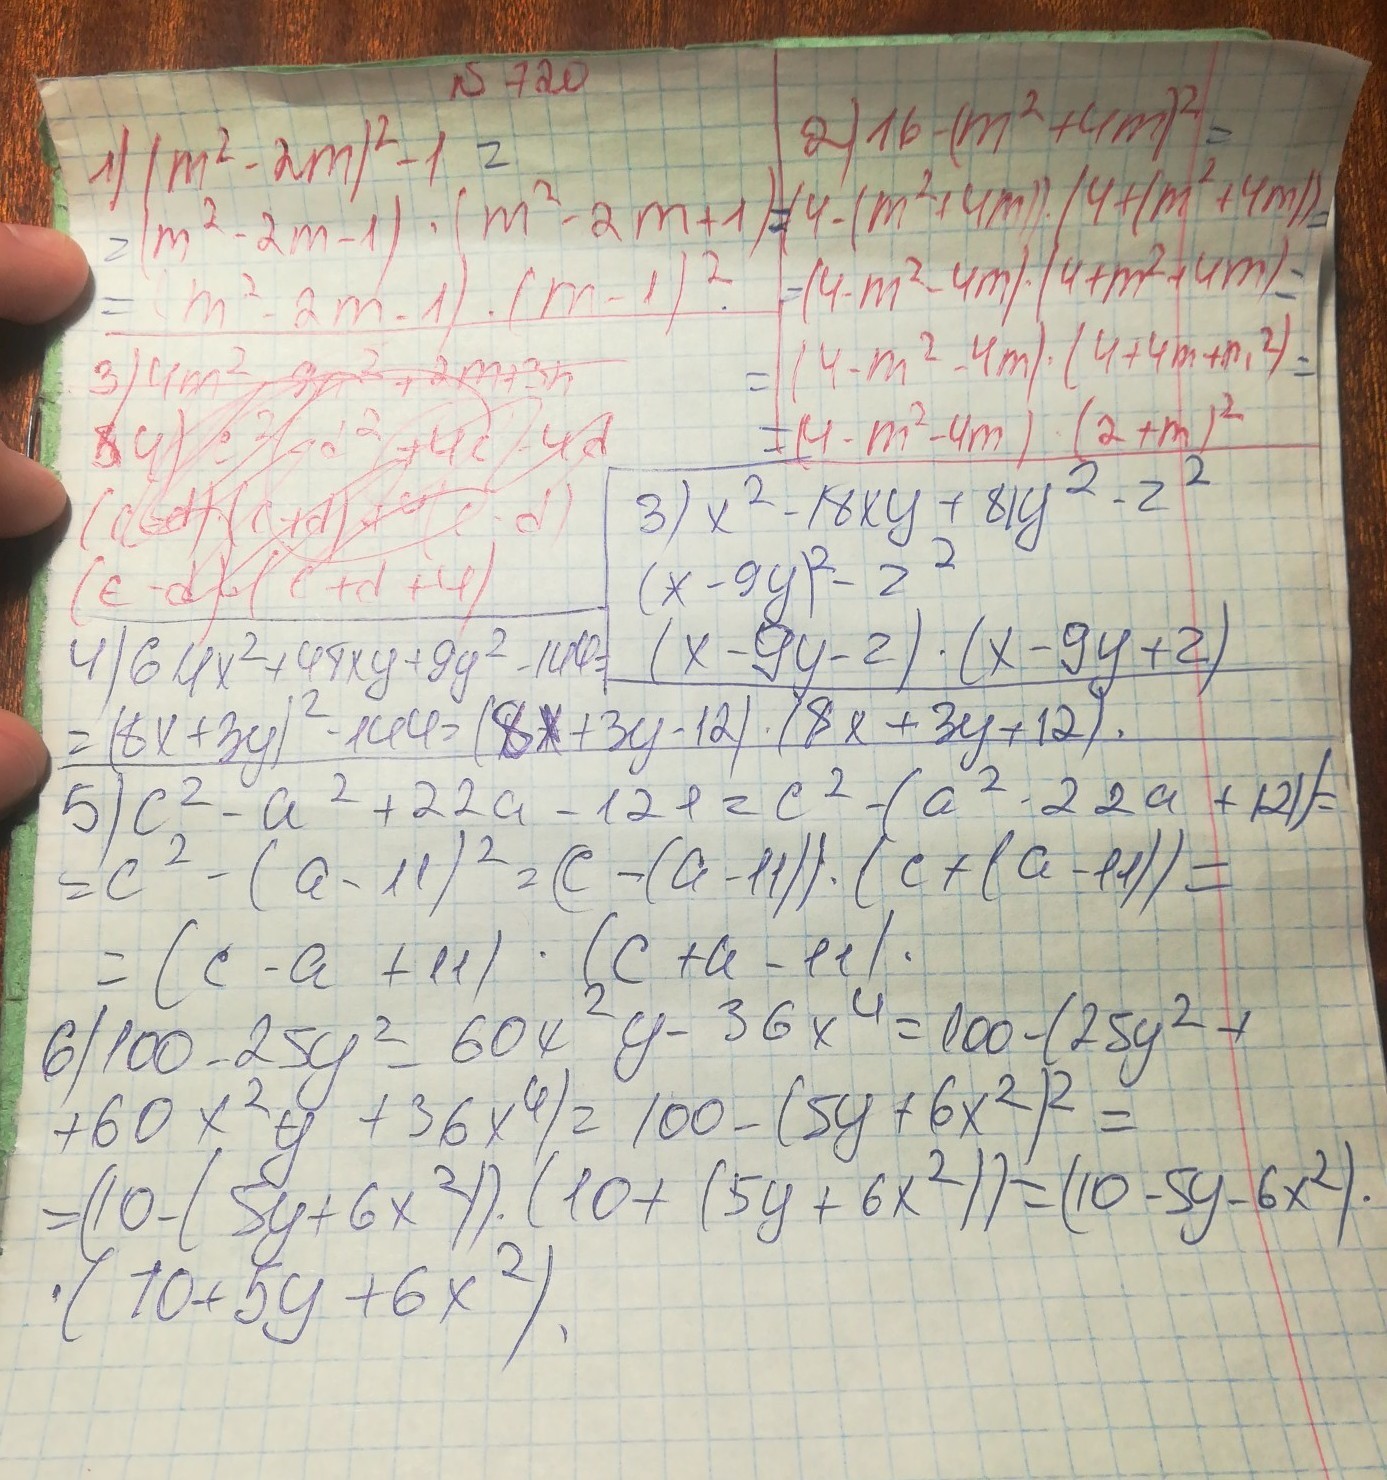 N 720
1) (m² - 2m)² - 1 =
= (m² - 2m - 1) · (m² - 2m + 1) =
= (m² - 2m - 1) · (m - 1)².
2) 16 - (m² + 4m)² =
= (4 - (m² + 4m)) · (4 + (m² + 4m)) =
= (4 - m² - 4m) · (4 + m² + 4m) =
= (4 - m² - 4m) · (4 + 4m + m²) =
= (4 - m² - 4m) · (2 + m)²
3) 4m² - 9n² + 2m + 3n
4) c² - d² + 4c - 4d
(c - d) · (c + d) + 4(c - d)
(c - d) · (c + d + 4)
3) x² - 18xy + 81y² - z²
(x - 9y)² - z²
(x - 9y - z) · (x - 9y + z)
4) 64x² + 48xy + 9y² - 144 =
= (8x + 3y)² - 144 = (8x + 3y - 12) · (8x + 3y + 12).
5) c² - a² + 22a - 121 = c² - (a² - 22a + 121) =
= c² - (a - 11)² = (c - (a - 11)) · (c + (a - 11)) =
= (c - a + 11) · (c + a - 11).
6) 100 - 25y² - 60x²y - 36x⁴ = 100 - (25y² +
+ 60x²y + 36x⁴) = 100 - (5y + 6x²)² =
= (10 - (5y + 6x²)) · (10 + (5y + 6x²)) = (10 - 5y - 6x²) ·
· (10 + 5y + 6x²).